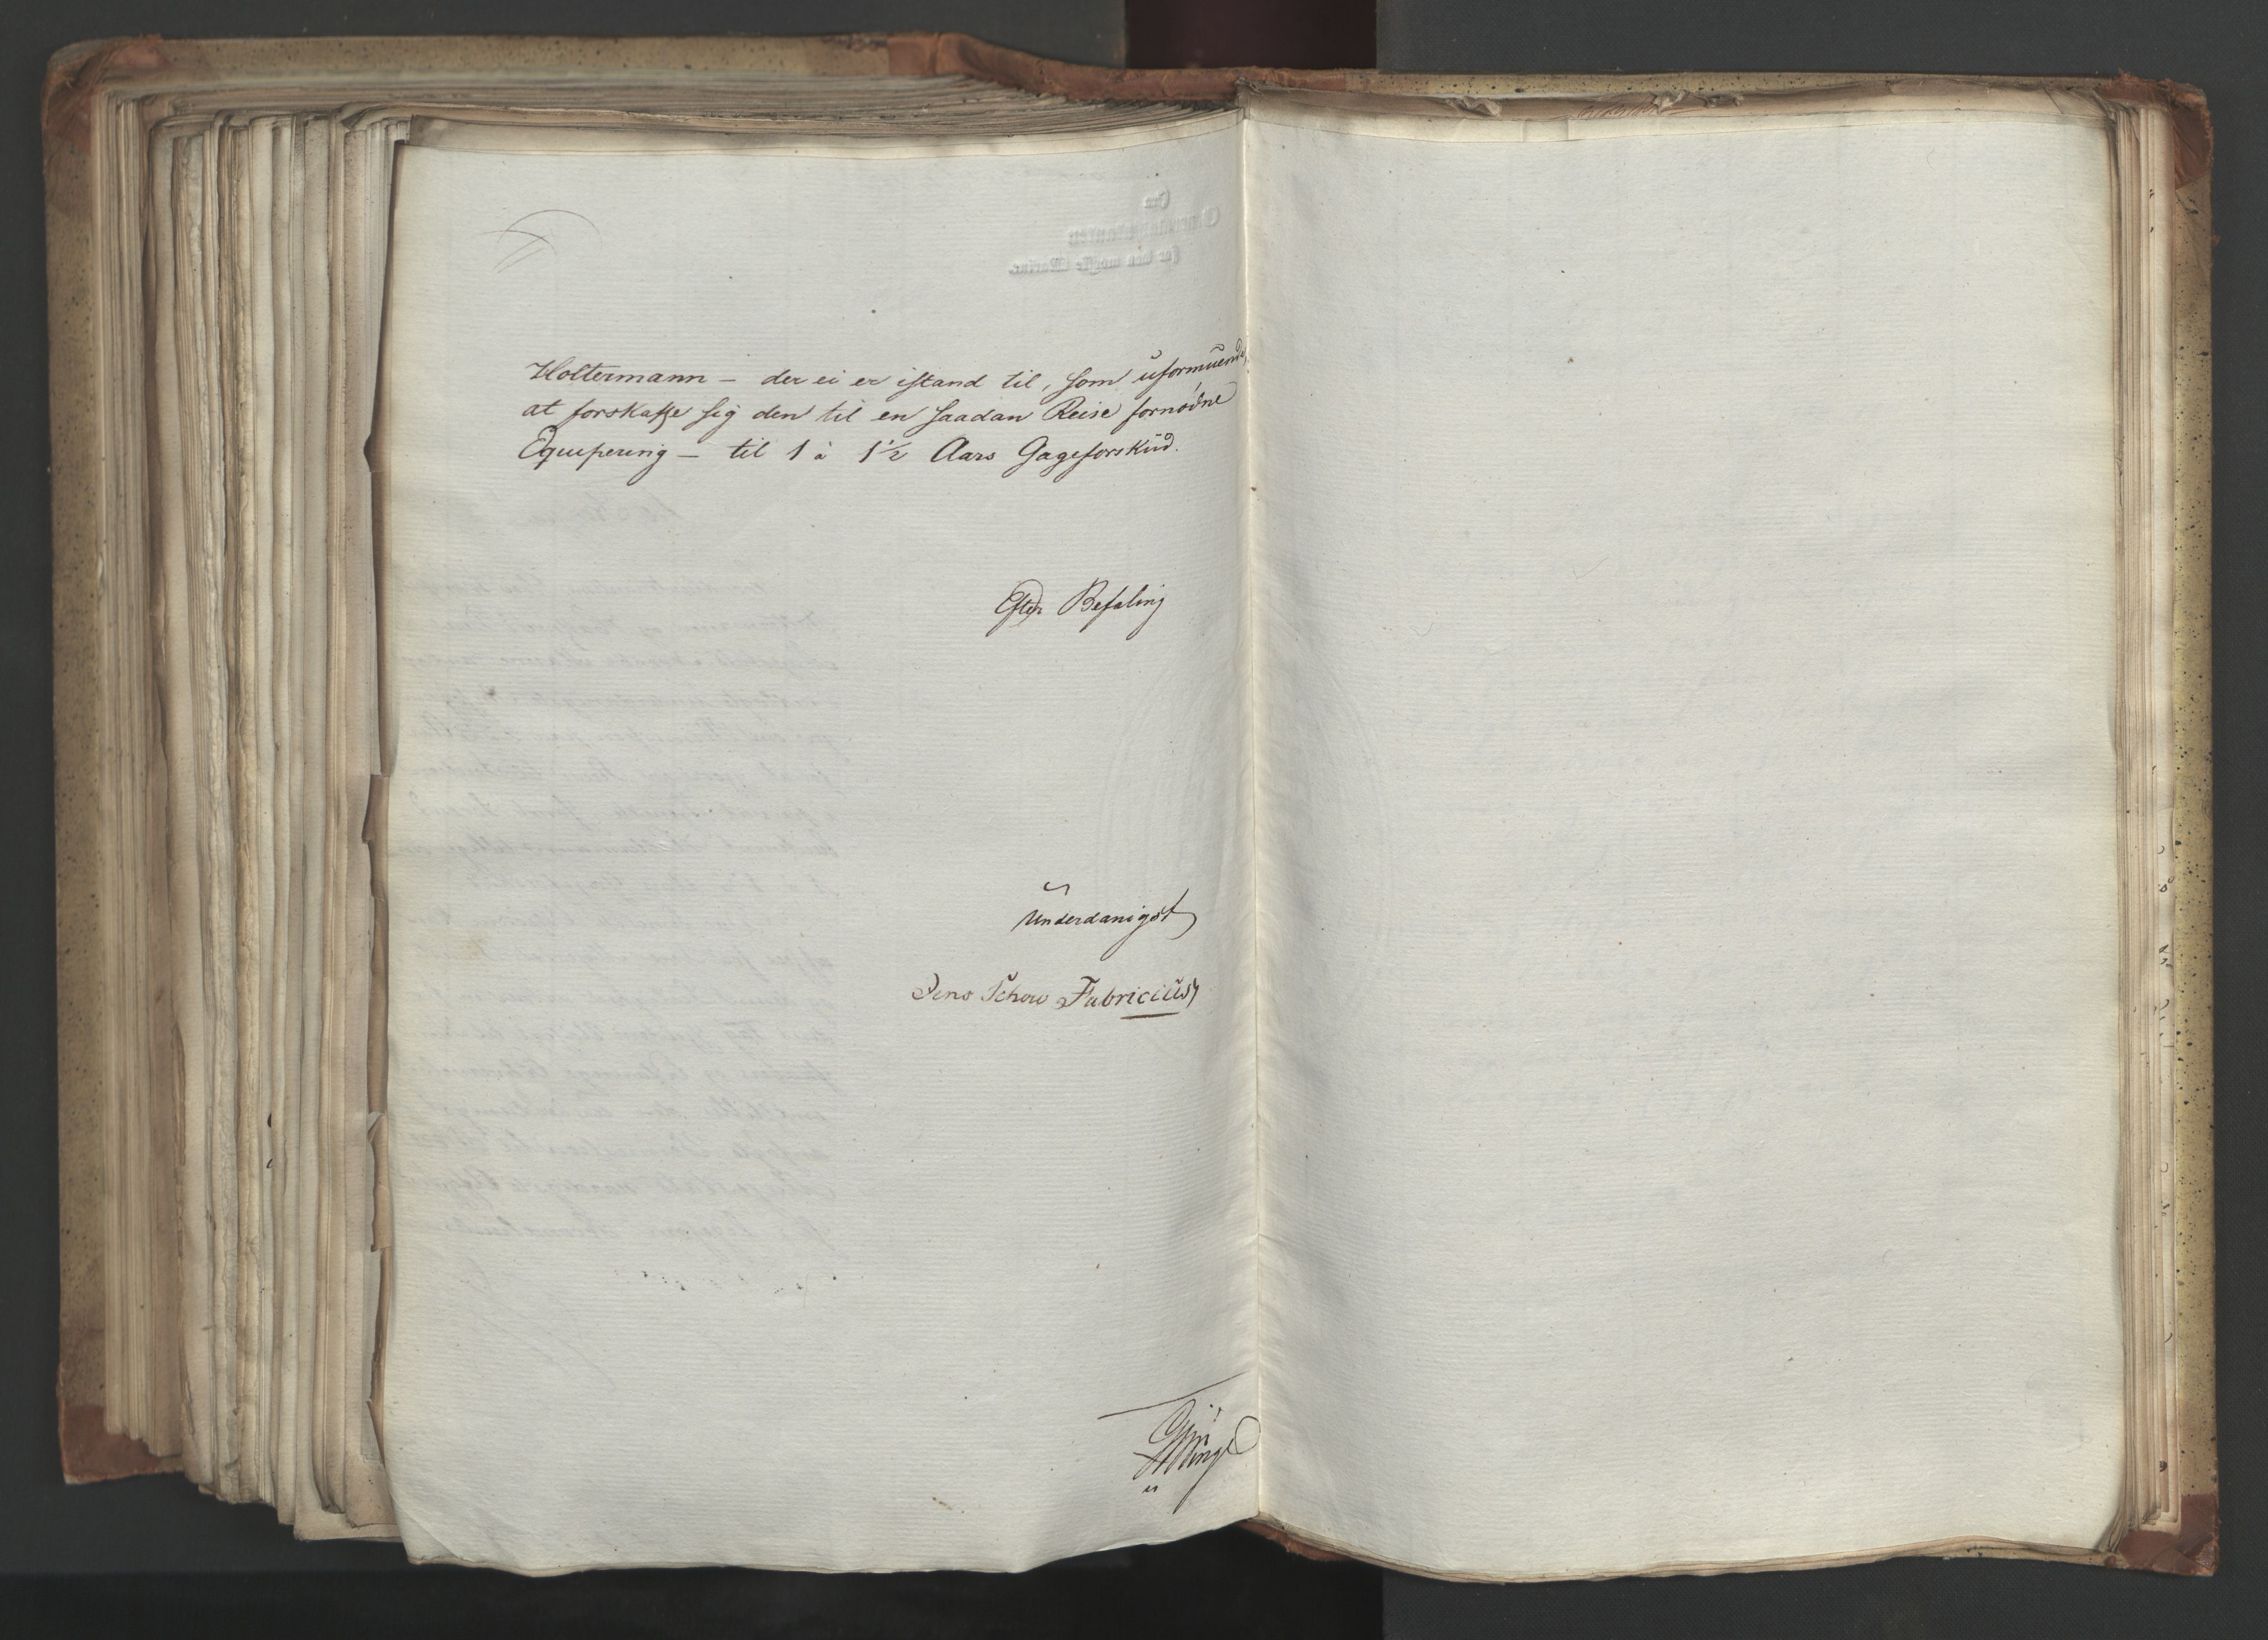 Holtermann – der ei er istand til, som uformuende,
at forskaffe sig den til en saadan Reise fornødne
Equipering – til 1 à 1½ Aars Gageforskud.
Efter Befaling
Underdanigst
Jens Schow Fabricius